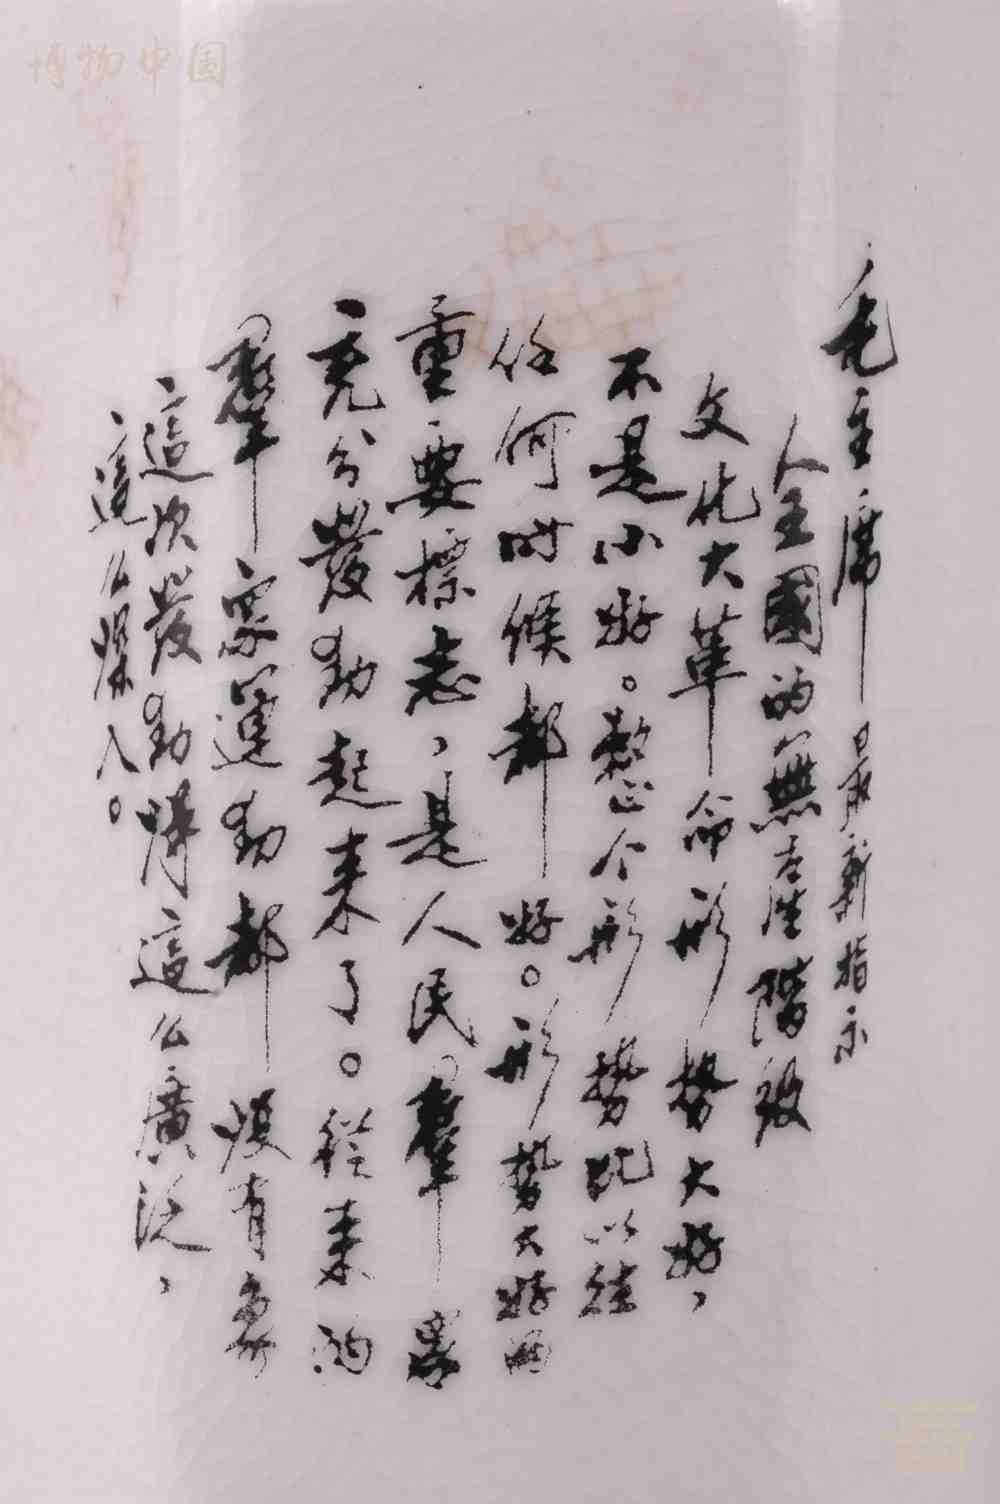 博物中国
毛主席最新指示
全國的無産階级
文化大革命形势大好，
不是小好。整个形势比以往
任何时候都好。形势大好的
重要標志，是人民羣眾
充分發動起来了。從来的
羣眾運動都没有象
這次發動得這么廣泛，
這么深入。